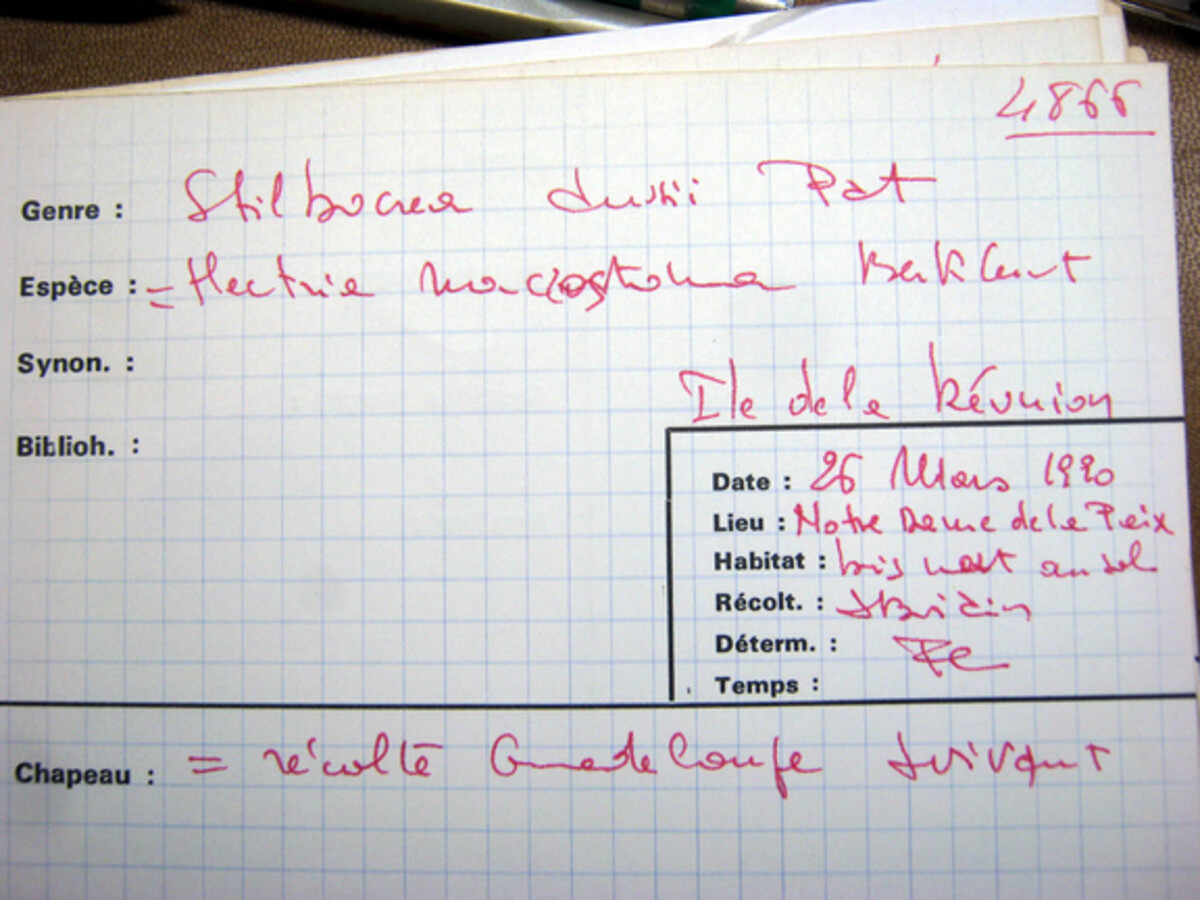 4866
Genre : Stilbocrea dussii Pat
Espèce : = Nectria macrostoma Berk Curt
Synon. :
Ile de la Réunion
Biblioh. :
Date : 26 Mars 1990
Lieu : Notre Dame de la Paix
Habitat : bois mort au sol
Récolt. :
Déterm. :
Temps :
Chapeau : = récolte Guadeloupe suivant